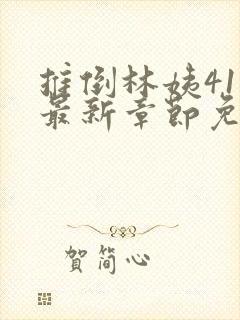 推倒林姨41
最新章节免
贺简心